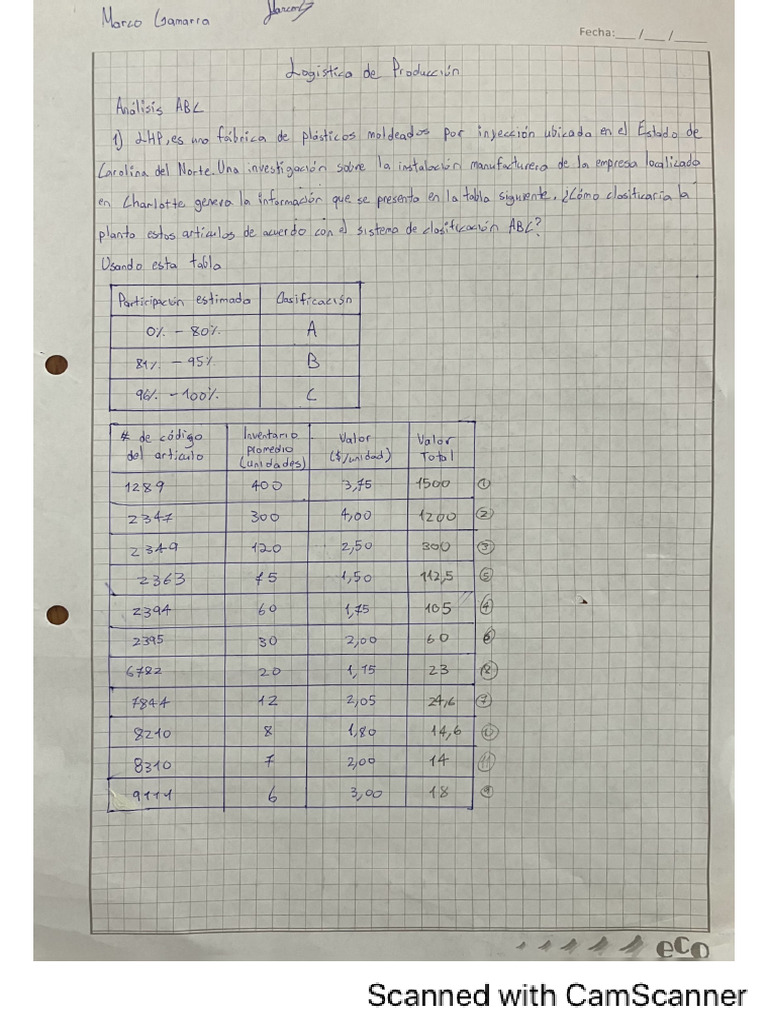 Marco Gamarra
Fecha: ___ / ___ / _____
Logistica de Producción
Análisis ABC
1) LHP, es una fábrica de plásticos moldeados por inyección ubicada en el Estado de
Carolina del Norte. Una investigación sobre la instalación manufacturera de la empresa localizado
en Charlotte genera la información que se presenta en la tabla siguiente. ¿Cómo clasificaría la
planta estos artículos de acuerdo con el sistema de clasificación ABC?
Usando esta tabla
Participación estimada Clasificación
0% - 80% A
81% - 95% B
96% - 100% C
# de código del articulo Inventario promedio (unidades) Valor ($/unidad) Valor Total
1289 400 3,75 1500 1
2347 300 4,00 1200 2
2349 120 2,50 300 3
2363 75 1,50 112,5 5
2394 60 1,75 105 4
2395 30 2,00 60
6782 20 1,15 23
7844 12 2,05 24,6 7
8210 8 1,80 14,6
8310 7 2,00 14 11
9111 6 3,00 18 9
eco
Scanned with CamScanner